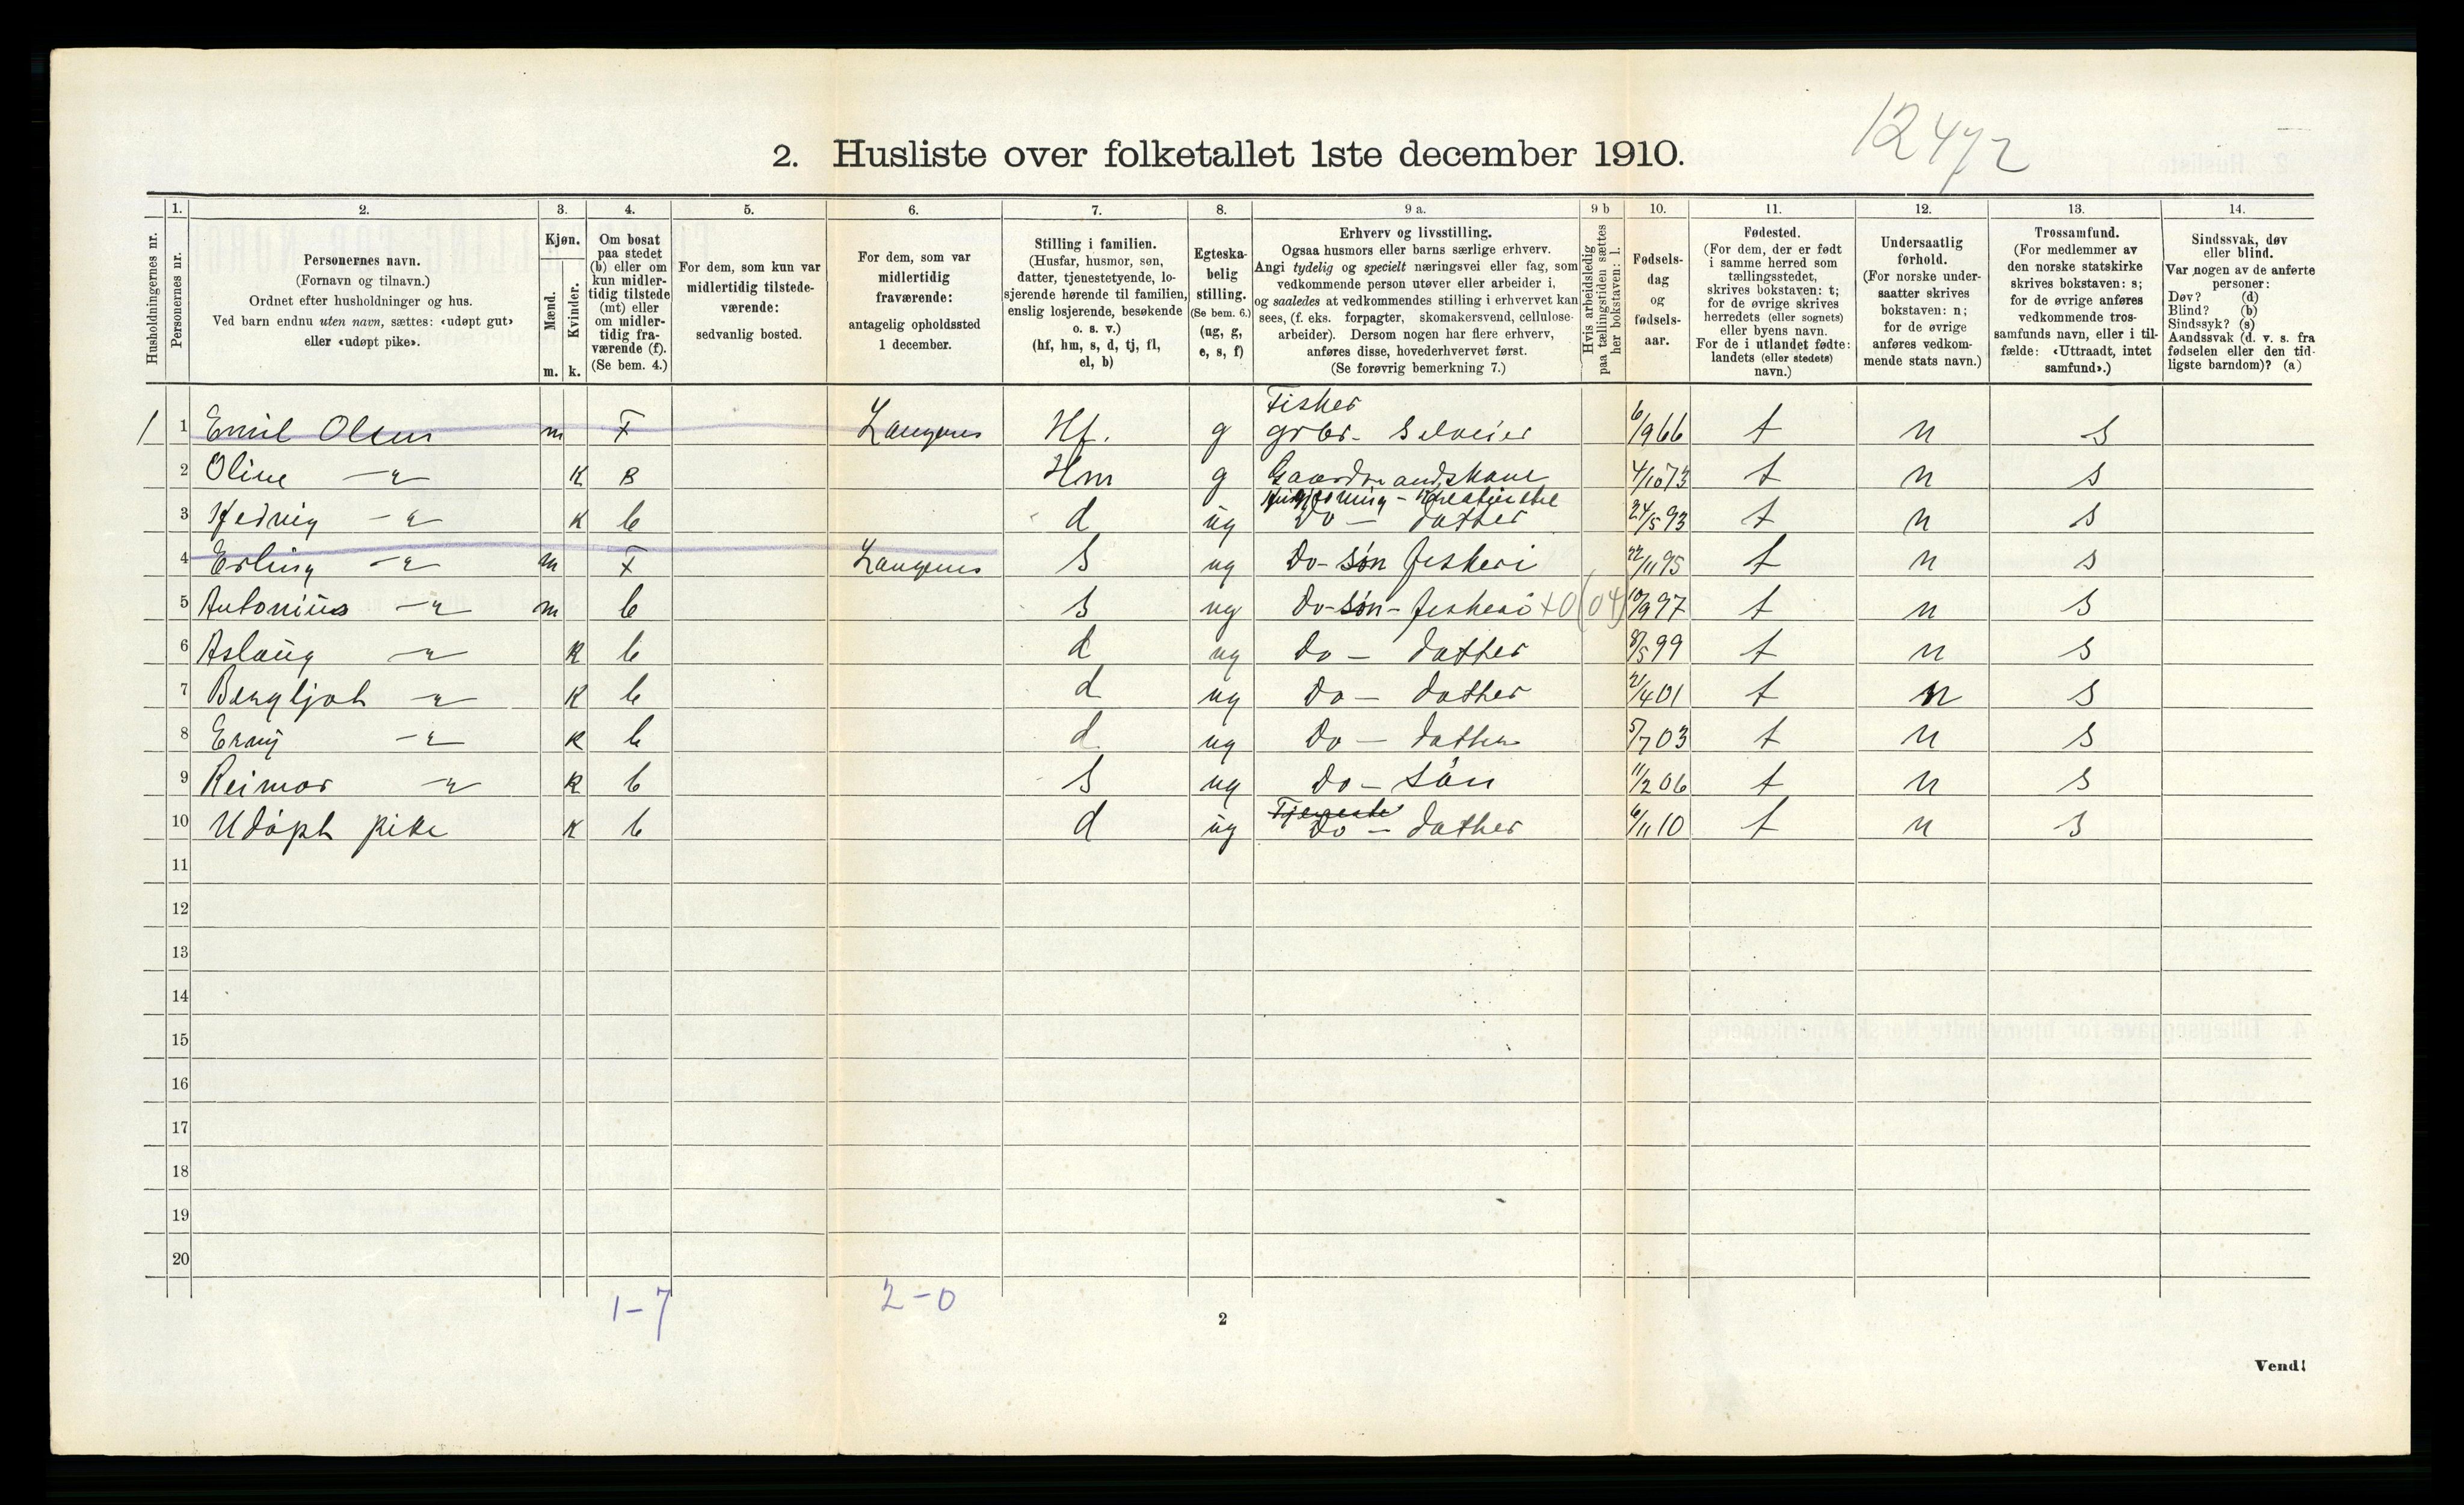 12472
2. Husliste over folketallet 1ste december 1910.
Husholdningernes nr.
1. Personernes nr.
2. Personernes navn. (Fornavn og tilnavn.) Ordnet efter husholdninger og hus. Ved barn endnu uten navn, sættes: «udøpt gut» eller «udøpt pike».
3. Kjøn. Mænd. m. Kvinder. k.
4. Om bosat paa stedet (b) eller om kun midlertidig tilstede (mt) eller om midlertidig fraværende (f). (Se bem. 4.)
5. For dem, som kun var midlertidig tilstedeværende: sedvanlig bosted.
6. For dem, som var midlertidig fraværende: antagelig opholdssted 1 december.
7. Stilling i familien. (Husfar, husmor, søn, datter, tjenestetyende, losjerende hørende til familien, enslig losjerende, besøkende o. s. v.) (hf, hm, s, d, tj, fl, el, b)
8. Egteskabelig stilling. (Se bem. 6.) (ug, g, e, s, f)
9 a. Erhverv og livsstilling. Ogsaa husmors eller barns særlige erhverv. Angi tydelig og specielt næringsvei eller fag, som vedkommende person utøver eller arbeider i, og saaledes at vedkommendes stilling i erhvervet kan sees, (f. eks. forpagter, skomakersvend, cellulosearbeider). Dersom nogen har flere erhverv, anføres disse, hovederhvervet først. (Se forøvrig bemerkning 7.)
9 b Hvis arbeidsledig paa tællingstiden sættes her bokstaven: l.
10. Fødselsdag og fødselsaar.
11. Fødested. (For dem, der er født i samme herred som tællingsstedet, skrives bokstaven: t; for de øvrige skrives herredets (eller sognets) eller byens navn. For de i utlandet fødte: landets (eller stedets) navn.)
12. Undersaatlig forhold. (For norske undersaatter skrives bokstaven: n; for de øvrige anføres vedkommende stats navn.)
13. Trossamfund. (For medlemmer av den norske statskirke skrives bokstaven: s; for de øvrige anføres vedkommende trossamfunds navn, eller i tilfælde: «Uttraadt, intet samfund».)
14. Sindssvak, døv eller blind. Var nogen av de anførte personer: Døv? (d) Blind? (b) Sindssyk? (s) Aandssvak (d. v. s. fra fødselen eller den tidligste barndom)? (a)
1 1 Emil Olsen m F Langenes Hf. g Fisker grbr. Selveier 6/9 66 t n s
2 Oline K B Hm g Gaardmandskone 4/10 73 t n s
3 Hedvig K b d ug Husgjerning - Kreaturstel Do - datter 24/5 93 t n s
4 Erling m F Langenes s ug Do - søn fiskeri 22/11 95 t n s
5 Antonius m b s ug Do - søn - fiskeri +0 (04) 10/9 97 t n s
6 Aslaug K b d ug Do - datter 8/5 99 t n s
7 Bergljot K b d ug Do - datter 21/4 01 t n s
8 Erany K b d ug Do - datter 5/7 03 t n s
9 Reimar K b s ug Do - søn 11/2 06 t n s
10 Udøpt pike K b d ug Tjeneste Do - datter 6/11 10 t n s
11
12
13
14
15
16
17
18
19
20
1-7 2-0
2
Vend!